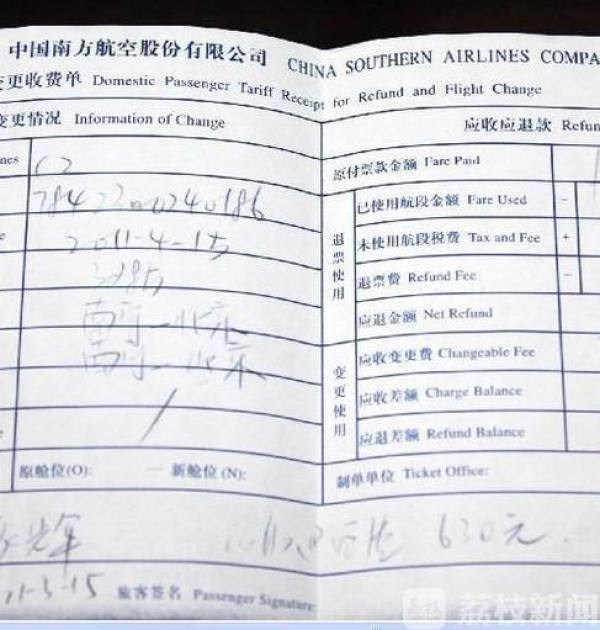 中国南方航空股份有限公司 CHINA SOUTHERN AIRLINES COMPA
变更收费单 Domestic Passenger Tariff Receipt for Refund and Flight Change
变更情况 Information of Change
应收应退款 Refun
nes CZ
原付票款金额 Fare Paid
7842200240186
退票使用
已使用航段金额 Fare Used －
2011-4-15
未使用航段税费 Tax and Fee ＋
退票费 Refund Fee －
南宁—北京
应退金额 Net Refund
南宁—北京
变更使用
应收变更费 Changeable Fee
/
应收差额 Charge Balance
应退差额 Refund Balance
原舱位(O): 新舱位(N):
制单单位 Ticket Office:
630元.
11-3-15 旅客签名 Passenger Signature
荔枝新闻